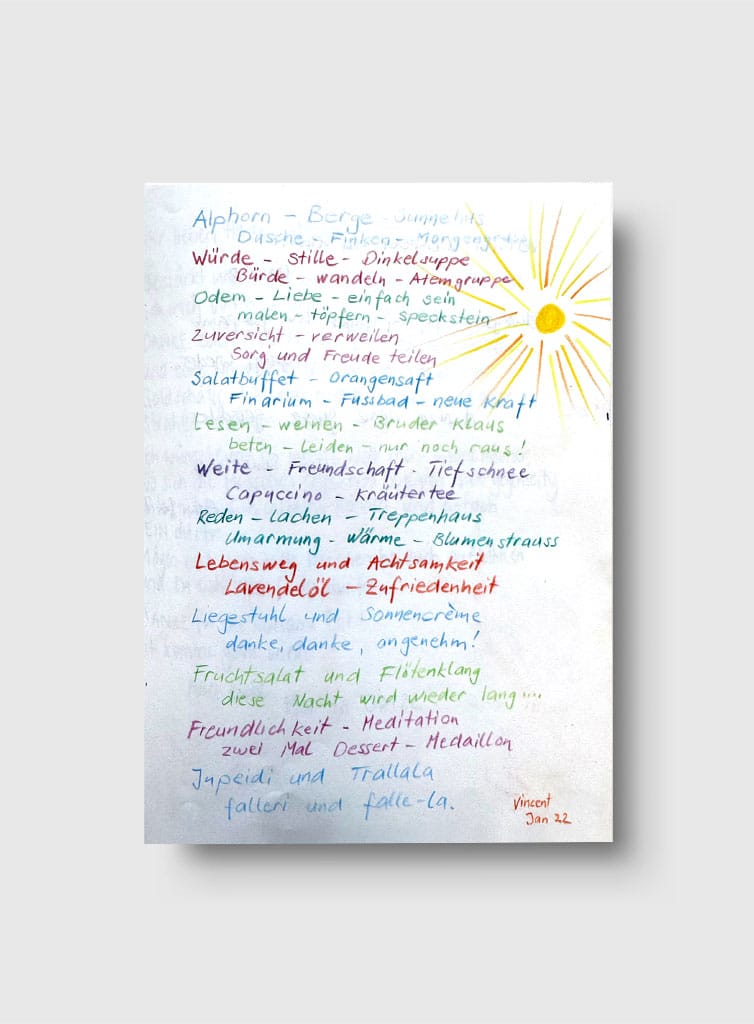 Alphorn - Berge -
Dusche - Finken - Morgengrauen
Würde - Stille - Dinkelsuppe
Bürde - wandeln - Atemgruppe
Odem - Liebe - einfach sein
malen - töpfern - Speckstein
Zuversicht - verweilen
Sorg' und Freude teilen
Salatbuffet - Orangensaft
Finarium - Fussbad - neue Kraft
Lesen - weinen - Bruder Klaus
beten - leiden - nur noch raus!
Weite - Freundschaft - Tiefschnee
Capuccino - Kräutertee
Reden - Lachen - Treppenhaus
Umarmung - Wärme - Blumenstrauss
Lebensweg und Achtsamkeit
Lavendelöl - Zufriedenheit
Liegestuhl und Sonnencrème
danke, danke, angenehm!
Fruchtsalat und Flötenklang
diese Nacht wird wieder lang....
Freundlichkeit - Meditation
zwei Mal Dessert - Medaillon
Jupeidi und Trallala
falleri und falle-la.
Vincent
Jan 22